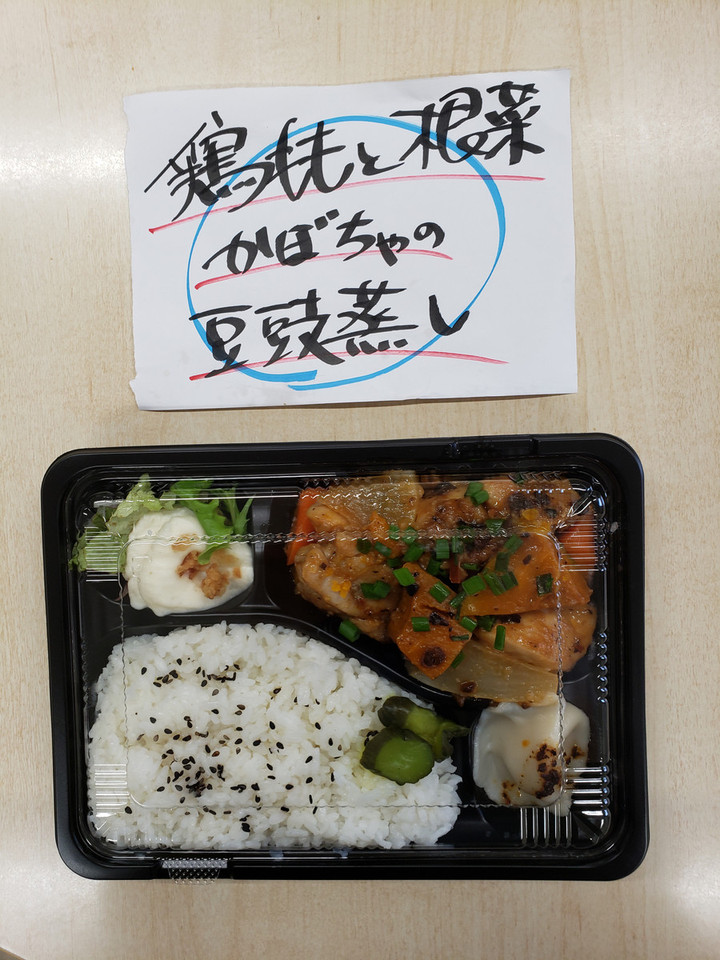 鶏ももと根菜
かぼちゃの
豆豉蒸し